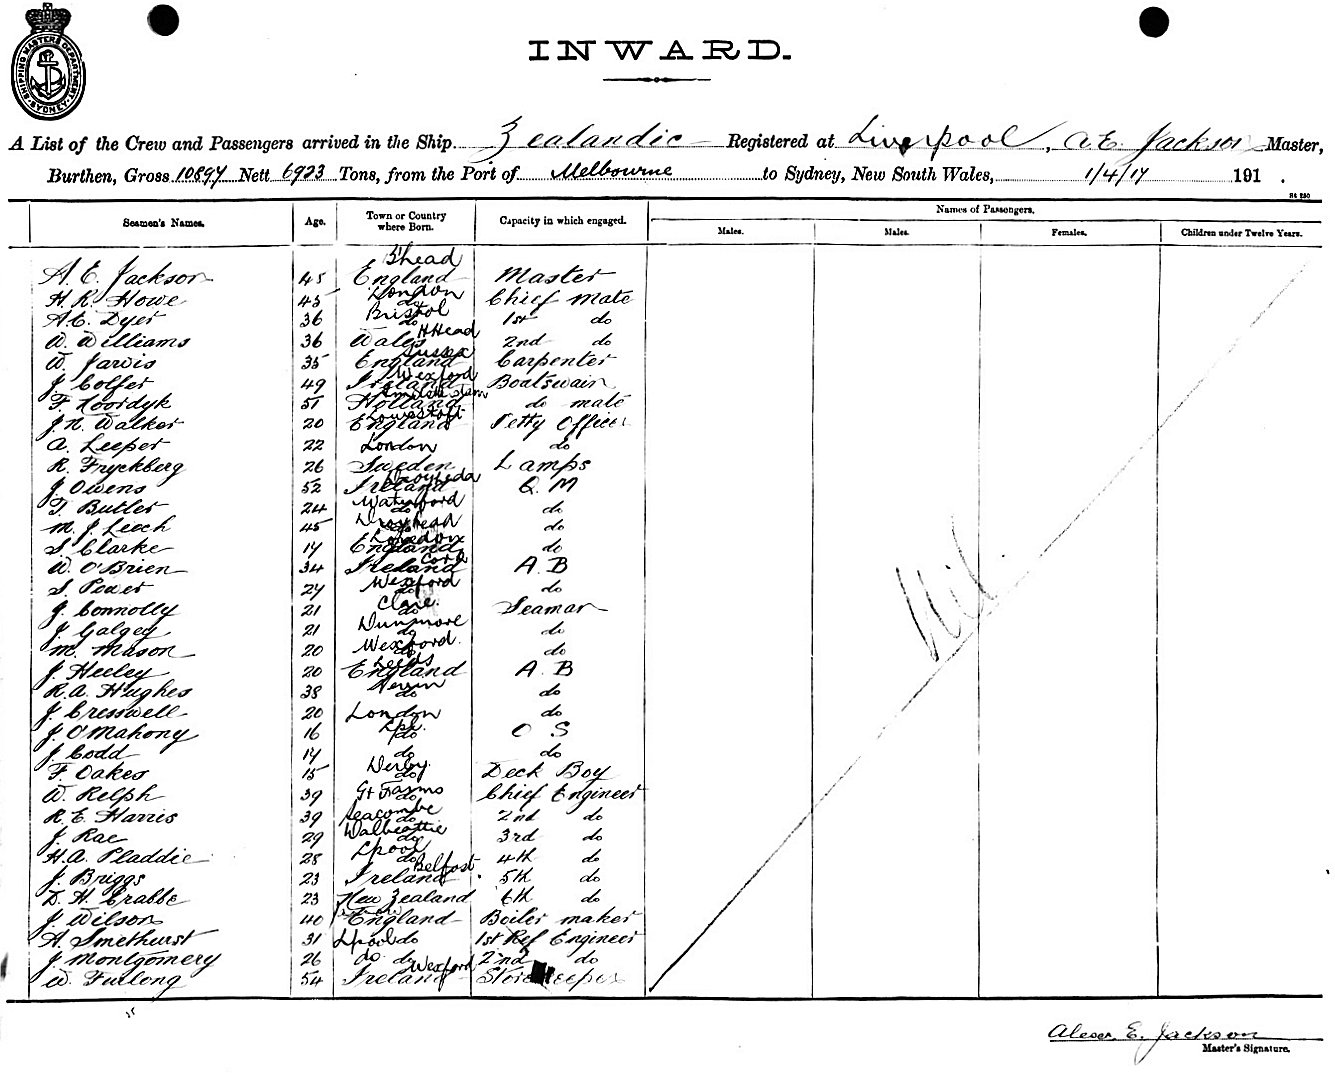 SHIPPING MASTERS DEPARTMENT SYDNEY
INWARD.
A List of the Crew and Passengers arrived in the Ship Zealandic Registered at Liverpool, A.E. Jackson Master,
Burthen, Gross 10897 Nett 6923 Tons, from the Port of Melbourne to Sydney, New South Wales, 1/4/17 191 .
St 250
Seamen's Names. Age. Town or Country where Born. Capacity in which engaged. Names of Passengers.
Males. Males. Females. Children under Twelve Years.
B'head
A. E. Jackson 45 England Master
London
H. R. Howe 45 do Chief mate
Bristol
A. E. Dyer 36 do 1st do
HHead
W. Williams 36 Wales 2nd do
Sussex
W. Jarvis 35 England Carpenter
Wexford
J. Colfer 49 Ireland Boatswain
Amsterdam
F. Koordyk 51 Holland do mate
Lowestoft
J. N. Walker 20 England Petty Officer
A. Leeper 22 London do
R. Fryckberg 26 Sweden Lamps
Drogheda
J. Owens 52 Ireland Q. M
Waterford
T. Butler 24 do do
M. J. Leech 45 do do
London
S. Clarke 17 England do
Cork
W. O'Brien 34 Ireland A. B
Wexford
S. Power 27 do do
Clare.
J. Connolly 21 do Seaman
Dunmore
J. Galgey 21 do do
Wexford.
M. Mason 20 do do
Leeds
J. Heeley 20 England A. B
Nevin
R. A. Hughes 38 do do
J. Cresswell 20 London do
Lpl.
J. O'Mahony 16 do O S
J. Codd 17 do do
Derby.
F. Oakes 15 do Deck Boy
W. Relph 39 do Chief Engineer
Seacombe
R. E. Harris 39 do 2nd do
Dalbeattie
J. Rae 29 do 3rd do
Lpool
H. A. Pladdie 28 do 4th do
Belfast.
J. Briggs 23 Ireland 5th do
D. H. Crabbe 23 New Zealand 6th do
J. Wilson 40 England Boiler maker
A. Smethurst 31 Lpool do 1st Ref Engineer
J. Montgomery 26 do do 2nd do
Wexford
W. Furlong 54 Ireland Storekeeper
Nil.
Alexr. E. Jackson
Master's Signature.